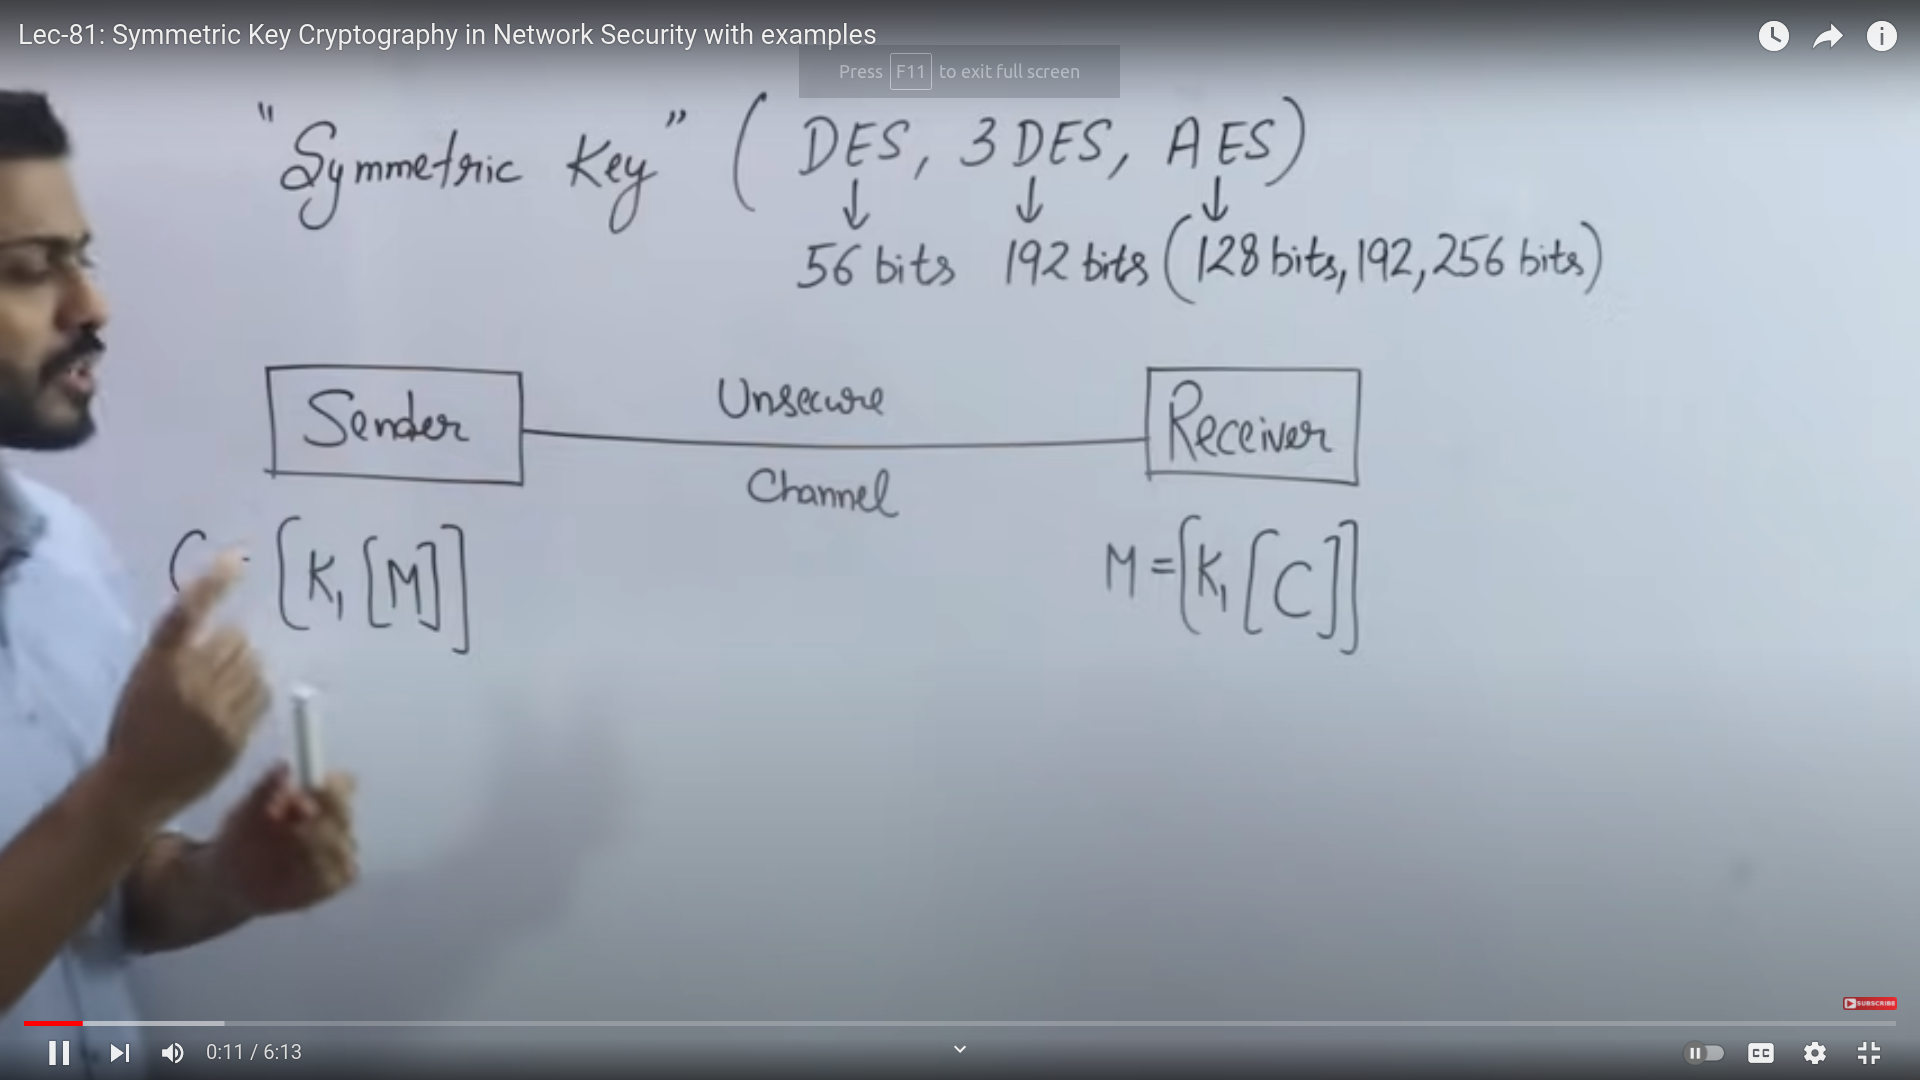 Lec-81: Symmetric Key Cryptography in Network Security with examples
Press F11 to exit full screen
"Symmetric Key" ( DES, 3DES, AES)
↓ ↓ ↓
56 bits 192 bits (128 bits, 192, 256 bits)
Sender Unsecure Channel Receiver
C = [K, [M]] M = [K, [C]]
SUBSCRIBE
0:11 / 6:13
CC